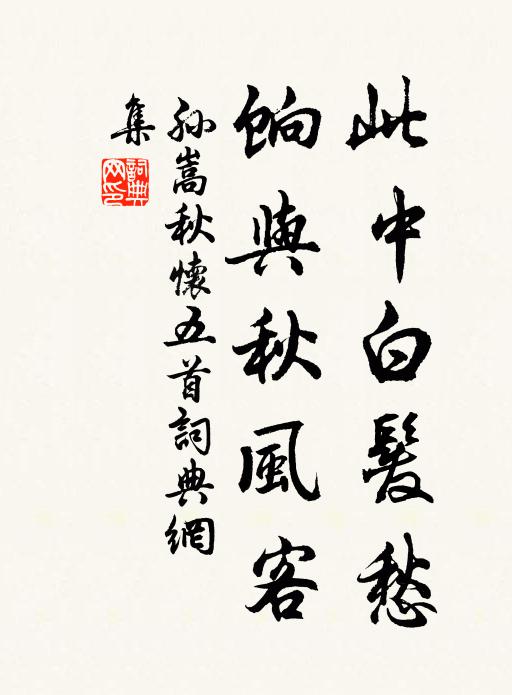 此中白髮愁
餉與秋風客
孫嵩秋懷五首詞典網
集
詞典網印